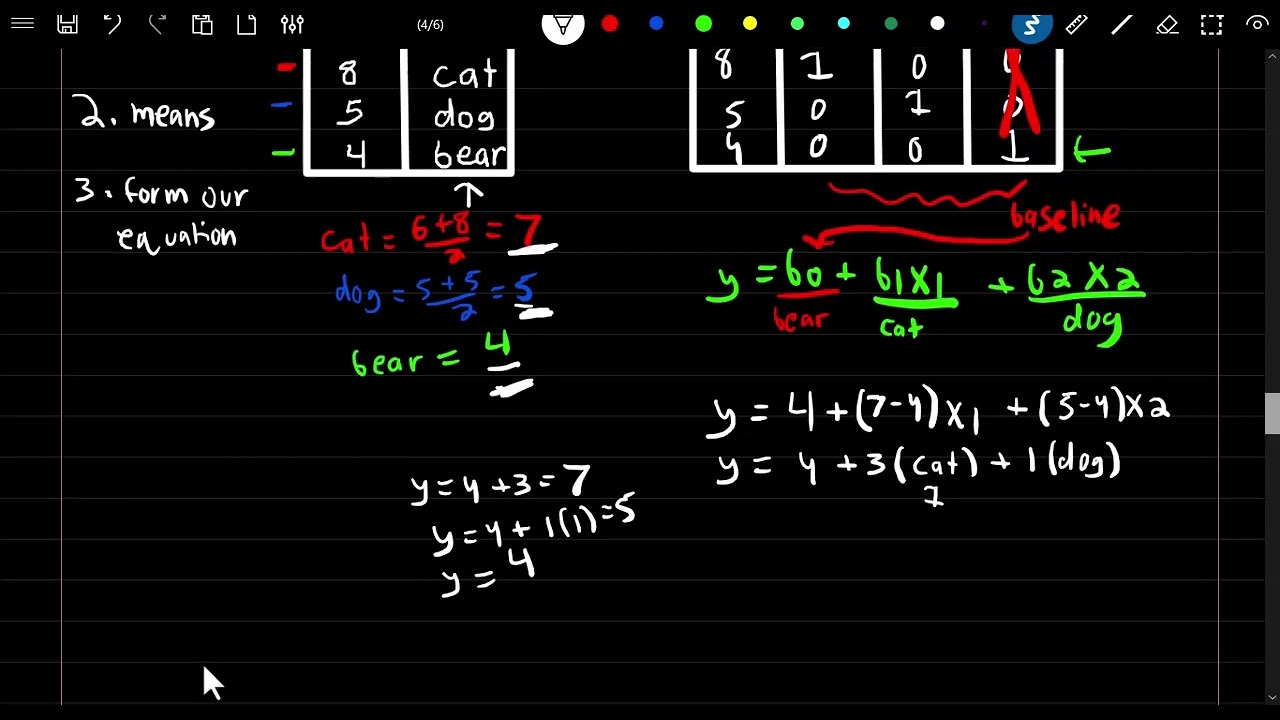 (4/6)
2. means
3. form our
equation
8 cat
5 dog
4 bear
↑
cat = 6+8/2 = 7
dog = 5+5/2 = 5
bear = 4
8 1 0 0
5 0 1 0
4 0 0 1 ←
baseline
y = b0 + b1x1 + b2x2
bear cat dog
y = 4 + (7-4)x1 + (5-4)x2
y = 4 + 3(cat) + 1(dog)
1
y = 4 + 3 = 7
y = 4 + 1(1) = 5
y = 4